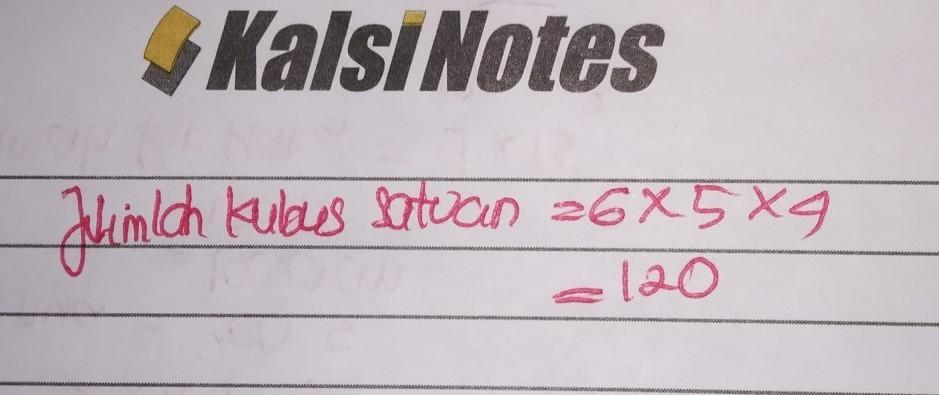 Kalsi Notes
Jumlah kubus satuan = 6 x 5 x 4
= 120